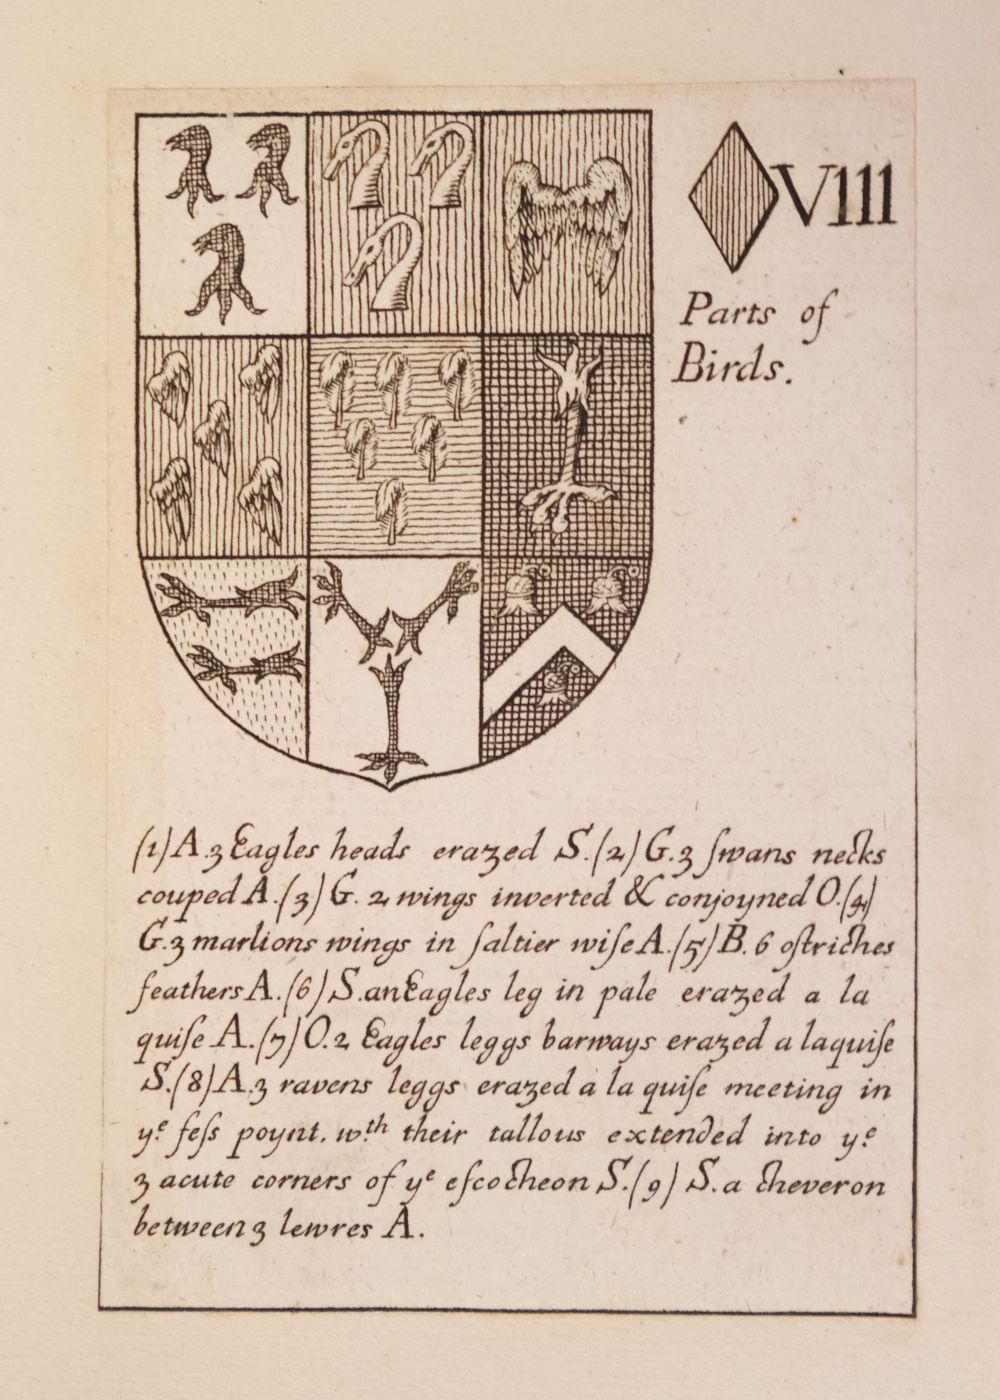 VIII
Parts of
Birds.
(1) A. 3 Eagles heads erazed S. (2) G. 3 ſwans necks
couped A. (3) G. 2 wings inverted & conjoyned O. (4)
G. 3 marlions wings in ſaltier wiſe A. (5) B. 6 oſtriches
feathers A. (6) S. an Eagles leg in pale erazed a la
quiſe A. (7) O. 2 Eagles leggs barways erazed a laquiſe
S. (8) A. 3 ravens leggs erazed a la quiſe meeting in
yᵉ feſs poynt. wᵗʰ their tallous extended into yᵉ
3 acute corners of yᵉ eſcocheon S. (9) S. a cheveron
between 3 lewres A.